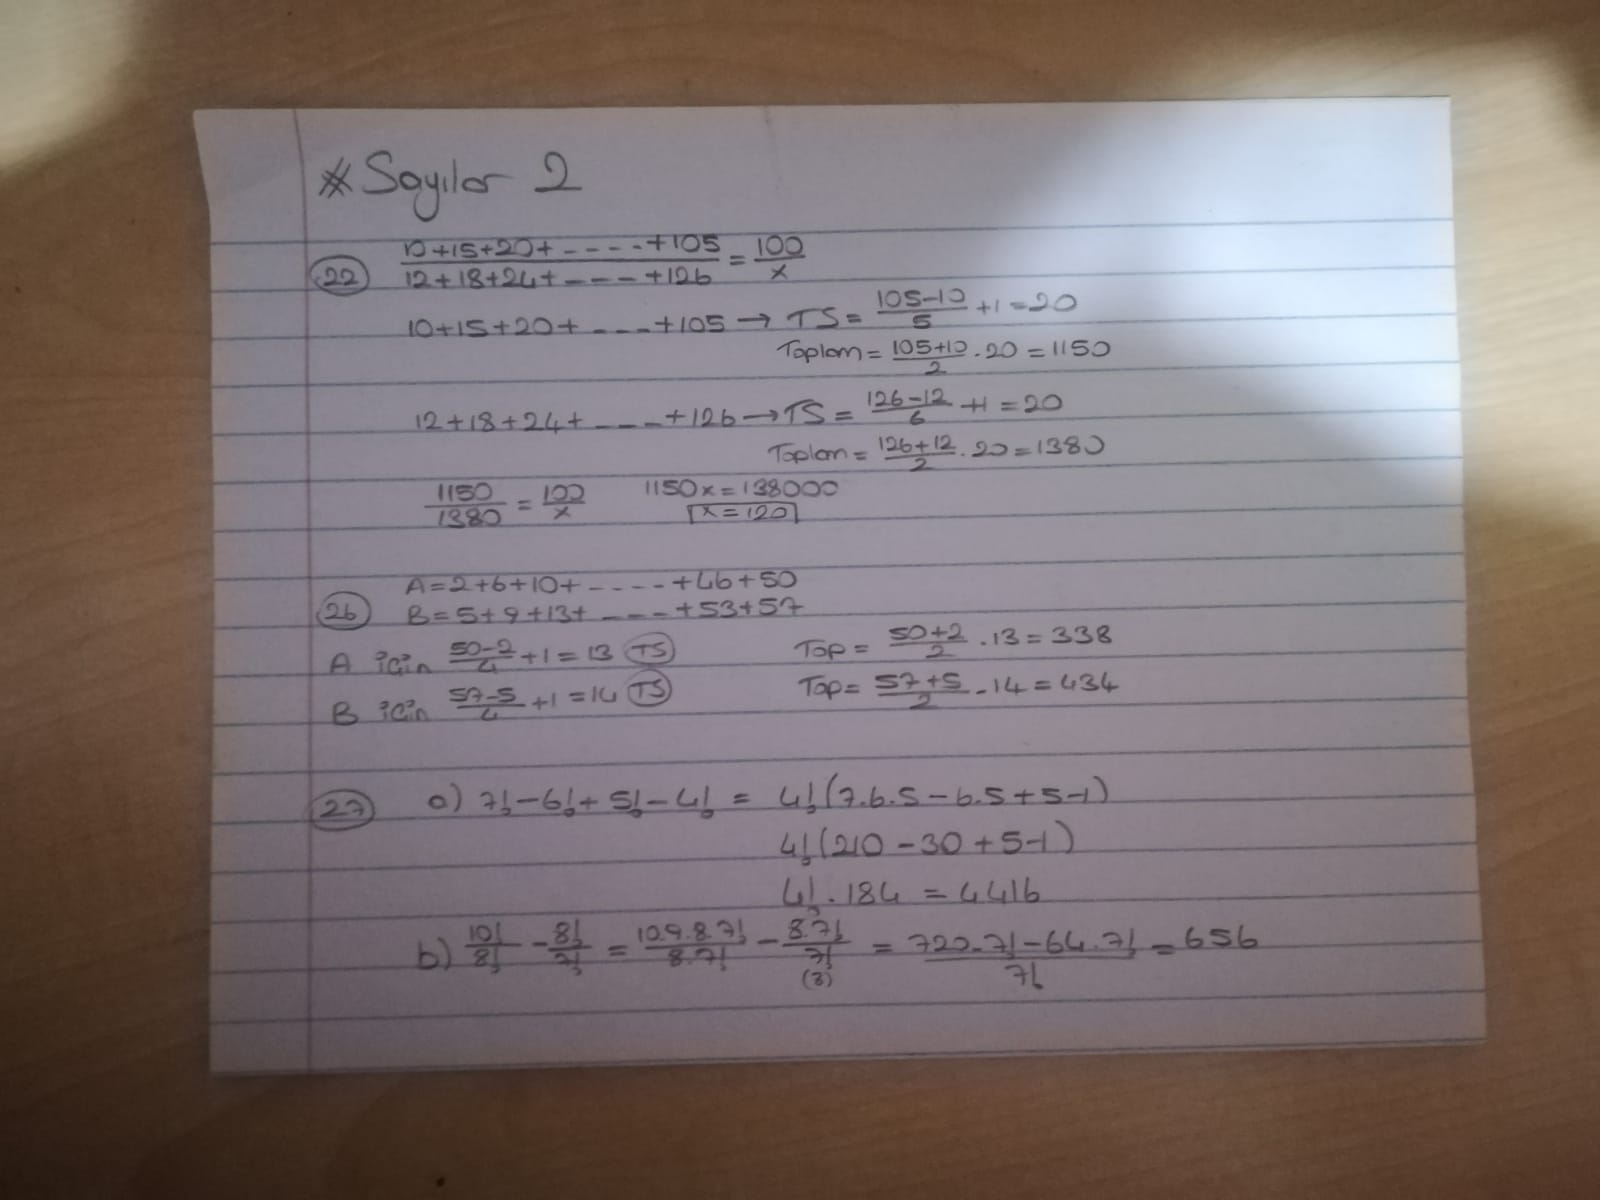 * Sayılar 2
22 (10+15+20+-----+105)/(12+18+24+----+126) = 100/x
10+15+20+----+105 → TS = (105-10)/5 +1=20
Toplam = (105+10)/2 . 20 = 1150
12+18+24+----+126 → TS = (126-12)/6 +1 = 20
Toplam = (126+12)/2 . 20 = 1380
1150/1380 = 100/x 1150x = 138000
x = 120
26 A=2+6+10+-----+46+50
B=5+9+13+----+53+57
A için (50-2)/4 +1 = 13 TS Top = (50+2)/2 . 13 = 338
B için (57-5)/4 +1 = 14 TS Top = (57+5)/2 . 14 = 434
27 a) 7!-6!+5!-4! = 4!(7.6.5-6.5+5-1)
4!(210-30+5-1)
4!.184 = 4416
b) 10!/8! - 8!/7! = 10.9.8.7!/8.7! - 8.7!/7! (8) = (720.7!-64.7!)/7! = 656